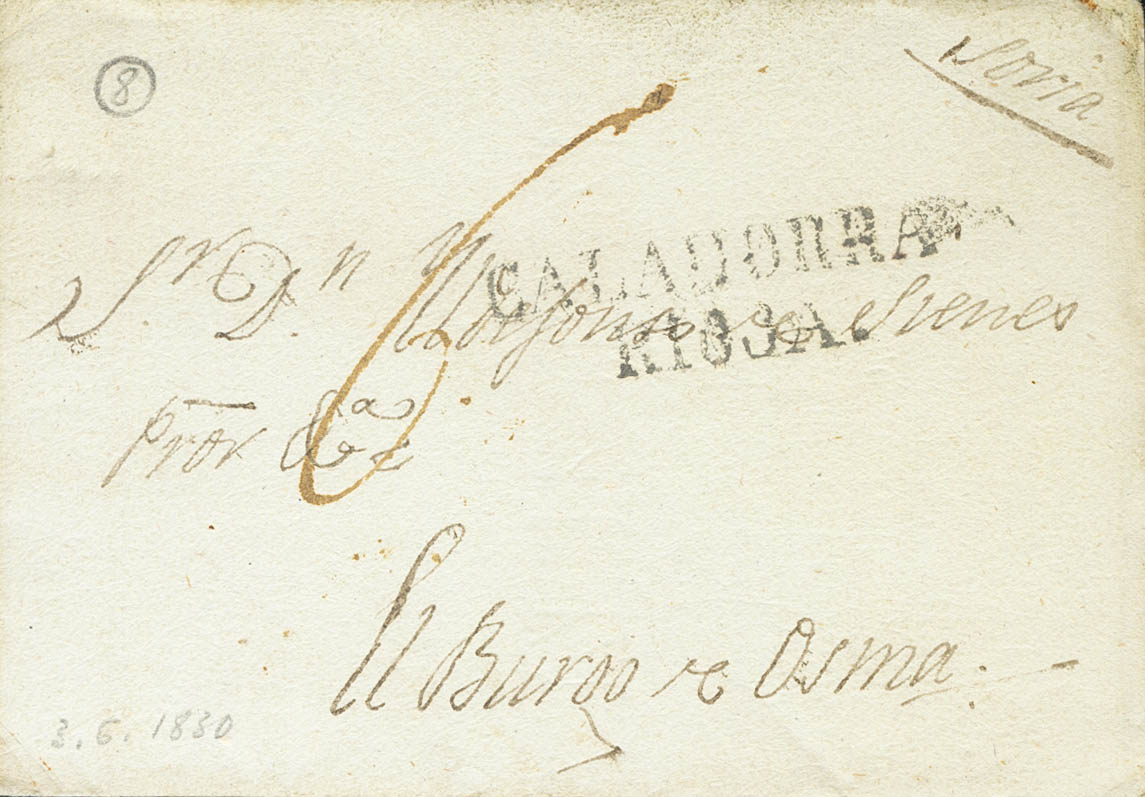 8
Soria
Sr. Dn. Yldefonso de
CALAHORRA
RIOJA.
Pror &a
6
El Burgo de Osma.
3.6.1830